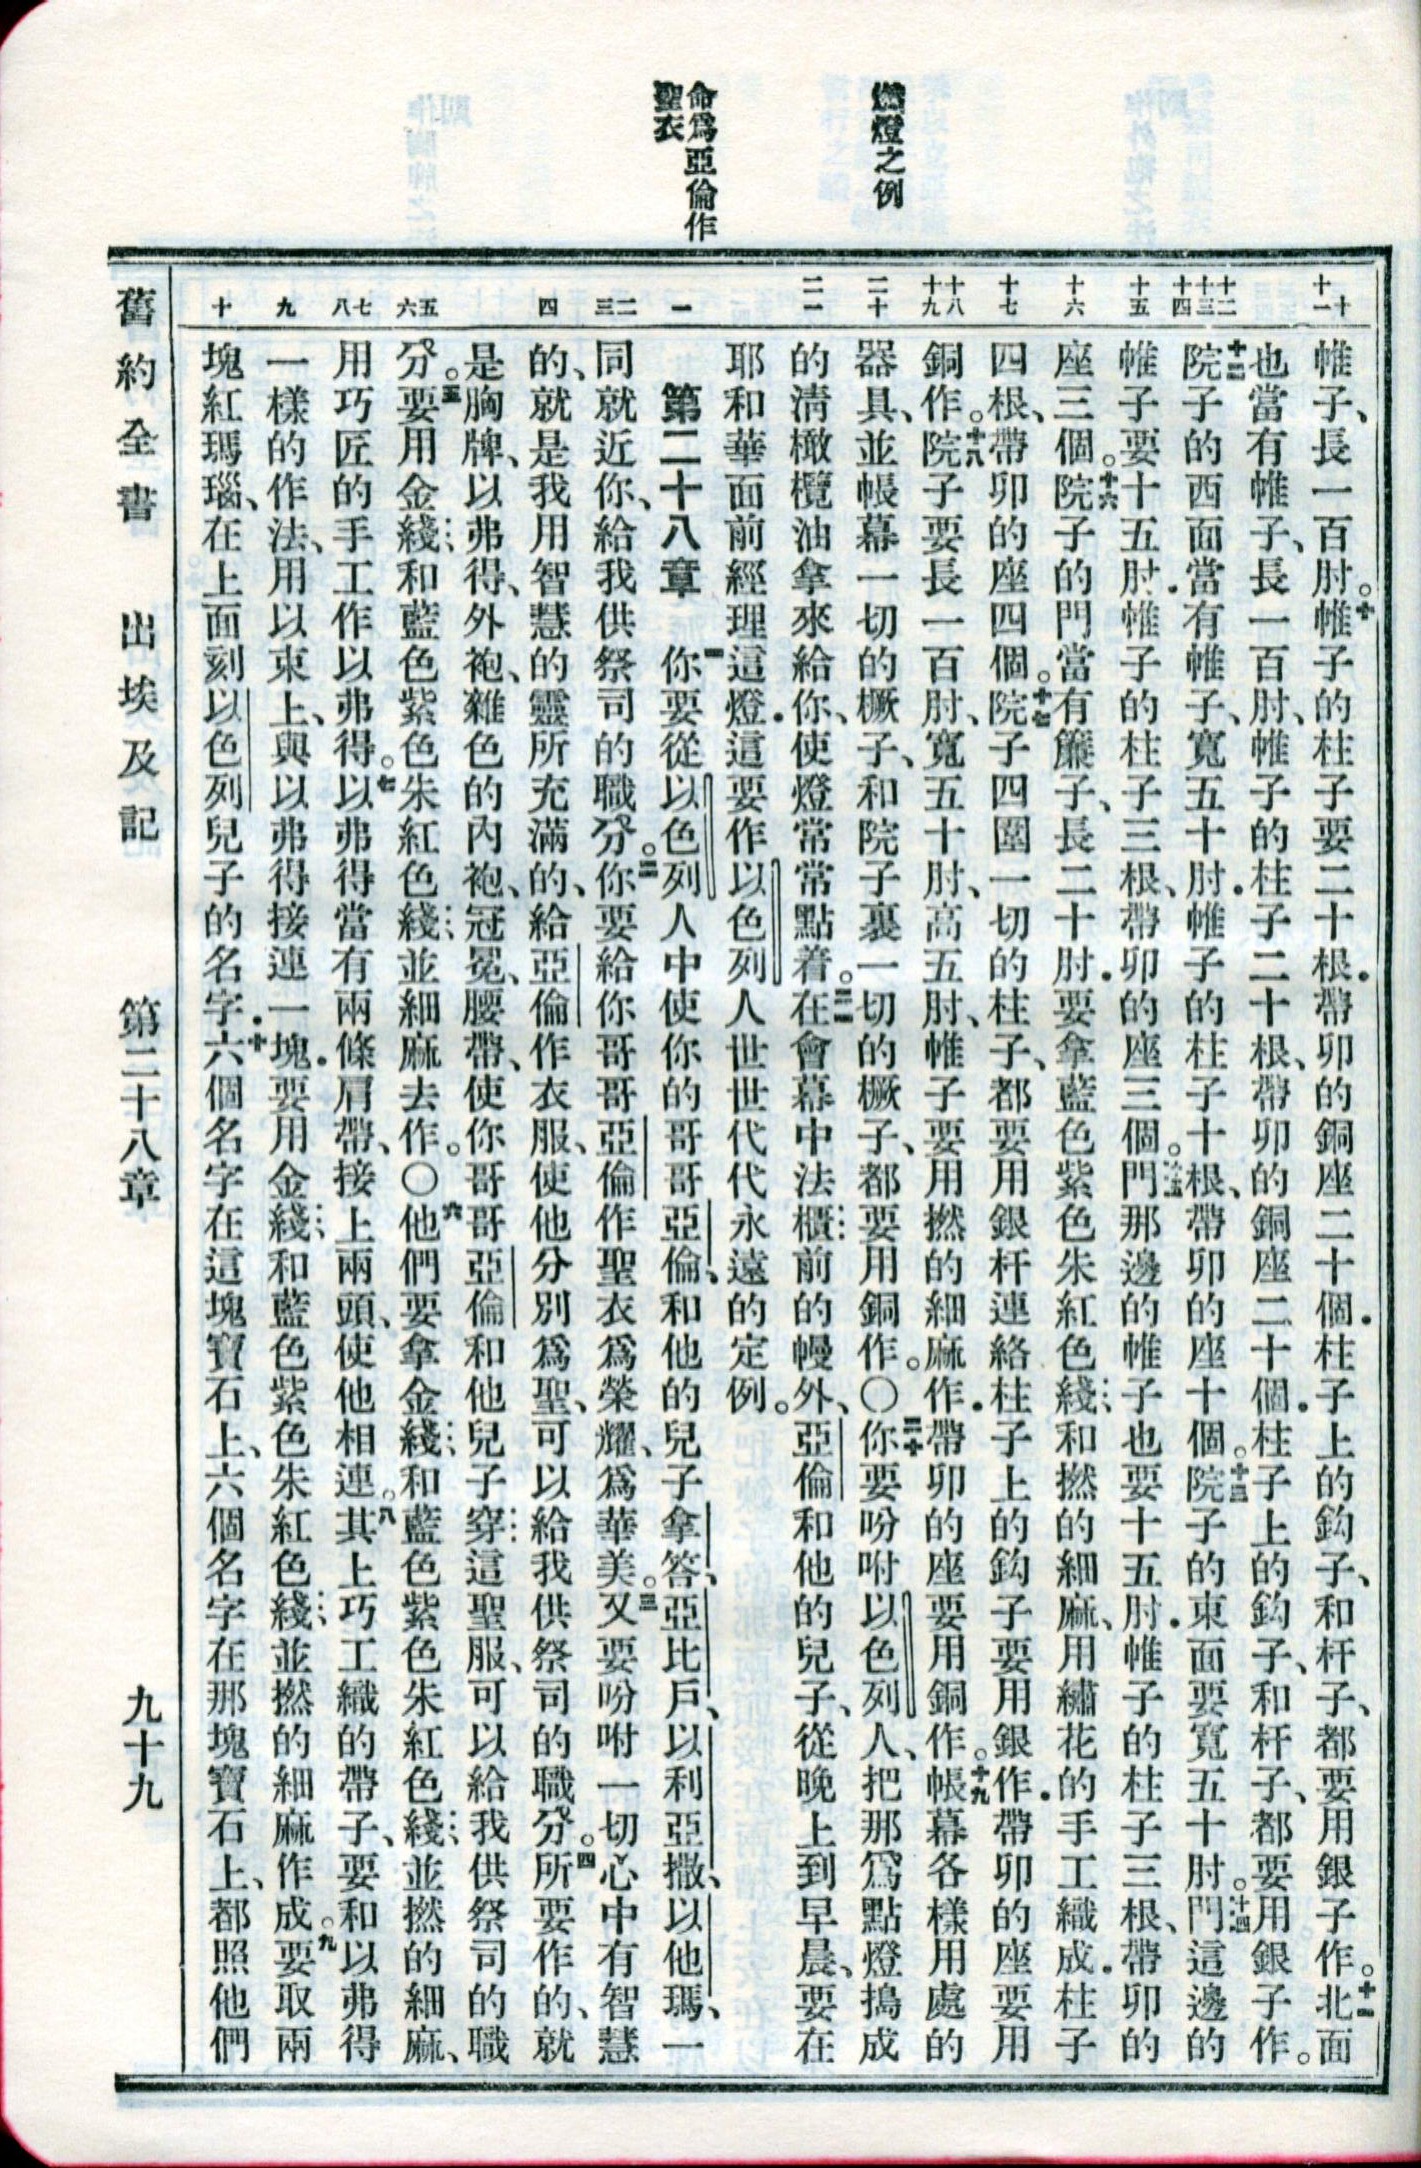 燃燈之例
命爲亞倫作
聖衣
十 十一
十二 十三 十四
十五
十六
十七
十八 十九
二十
二一
一
二 三
四
五 六
七 八
九
十
帷子、長一百肘。十帷子的柱子要二十根．帶卯的銅座二十個．柱子上的鈎子、和杆子、都要用銀子作。十一北面
也當有帷子、長一百肘、帷子的柱子二十根、帶卯的銅座二十個．柱子上的鈎子、和杆子、都要用銀子作。
十二院子的西面當有帷子、寬五十肘．帷子的柱子十根、帶卯的座十個。十三院子的東面要寬五十肘。十四門這邊的
帷子要十五肘．帷子的柱子三根、帶卯的座三個。十五門那邊的帷子也要十五肘．帷子的柱子三根、帶卯的
座三個。十六院子的門當有簾子、長二十肘．要拿藍色紫色朱紅色綫和撚的細麻、用繡花的手工織成．柱子
四根、帶卯的座四個。十七院子四圍一切的柱子、都要用銀杆連絡．柱子上的鈎子要用銀作．帶卯的座要用
銅作。十八院子要長一百肘、寬五十肘、高五肘、帷子要用撚的細麻作．帶卯的座要用銅作。十九帳幕各樣用處的
器具、並帳幕一切的橛子、和院子裏一切的橛子、都要用銅作。〇二十你要吩咐以色列人、把那爲點燈搗成
的清橄欖油拿來給你、使燈常常點着。二一在會幕中法櫃前的幔外、亞倫和他的兒子、從晚上到早晨、要在
耶和華面前經理這燈．這要作以色列人世世代代永遠的定例。
第二十八章 一你要從以色列人中使你的哥哥亞倫、和他的兒子拿答、亞比戶、以利亞撒、以他瑪、一
同就近你、給我供祭司的職分。二你要給你哥哥亞倫作聖衣爲榮耀、爲華美。三又要吩咐一切心中有智慧
的、就是我用智慧的靈所充滿的、給亞倫作衣服、使他分別爲聖、可以給我供祭司的職分。四所要作的、就
是胸牌、以弗得、外袍、雜色的內袍、冠冕、腰帶、使你哥哥亞倫和他兒子穿這聖服、可以給我供祭司的職
分。五要用金綫和藍色紫色朱紅色綫、並細麻去作。〇六他們要拿金綫和藍色紫色朱紅色綫並撚的細麻、
用巧匠的手工作以弗得。七以弗得當有兩條肩帶、接上兩頭、使他相連。八其上巧工織的帶子、要和以弗得
一樣的作法、用以束上、與以弗得接連一塊．要用金綫和藍色紫色朱紅色綫並撚的細麻作成。九要取兩
塊紅瑪瑙、在上面刻以色列兒子的名字．十六個名字在這塊寶石上、六個名字在那塊寶石上、都照他們
舊約全書 出埃及記 第二十八章 九十九